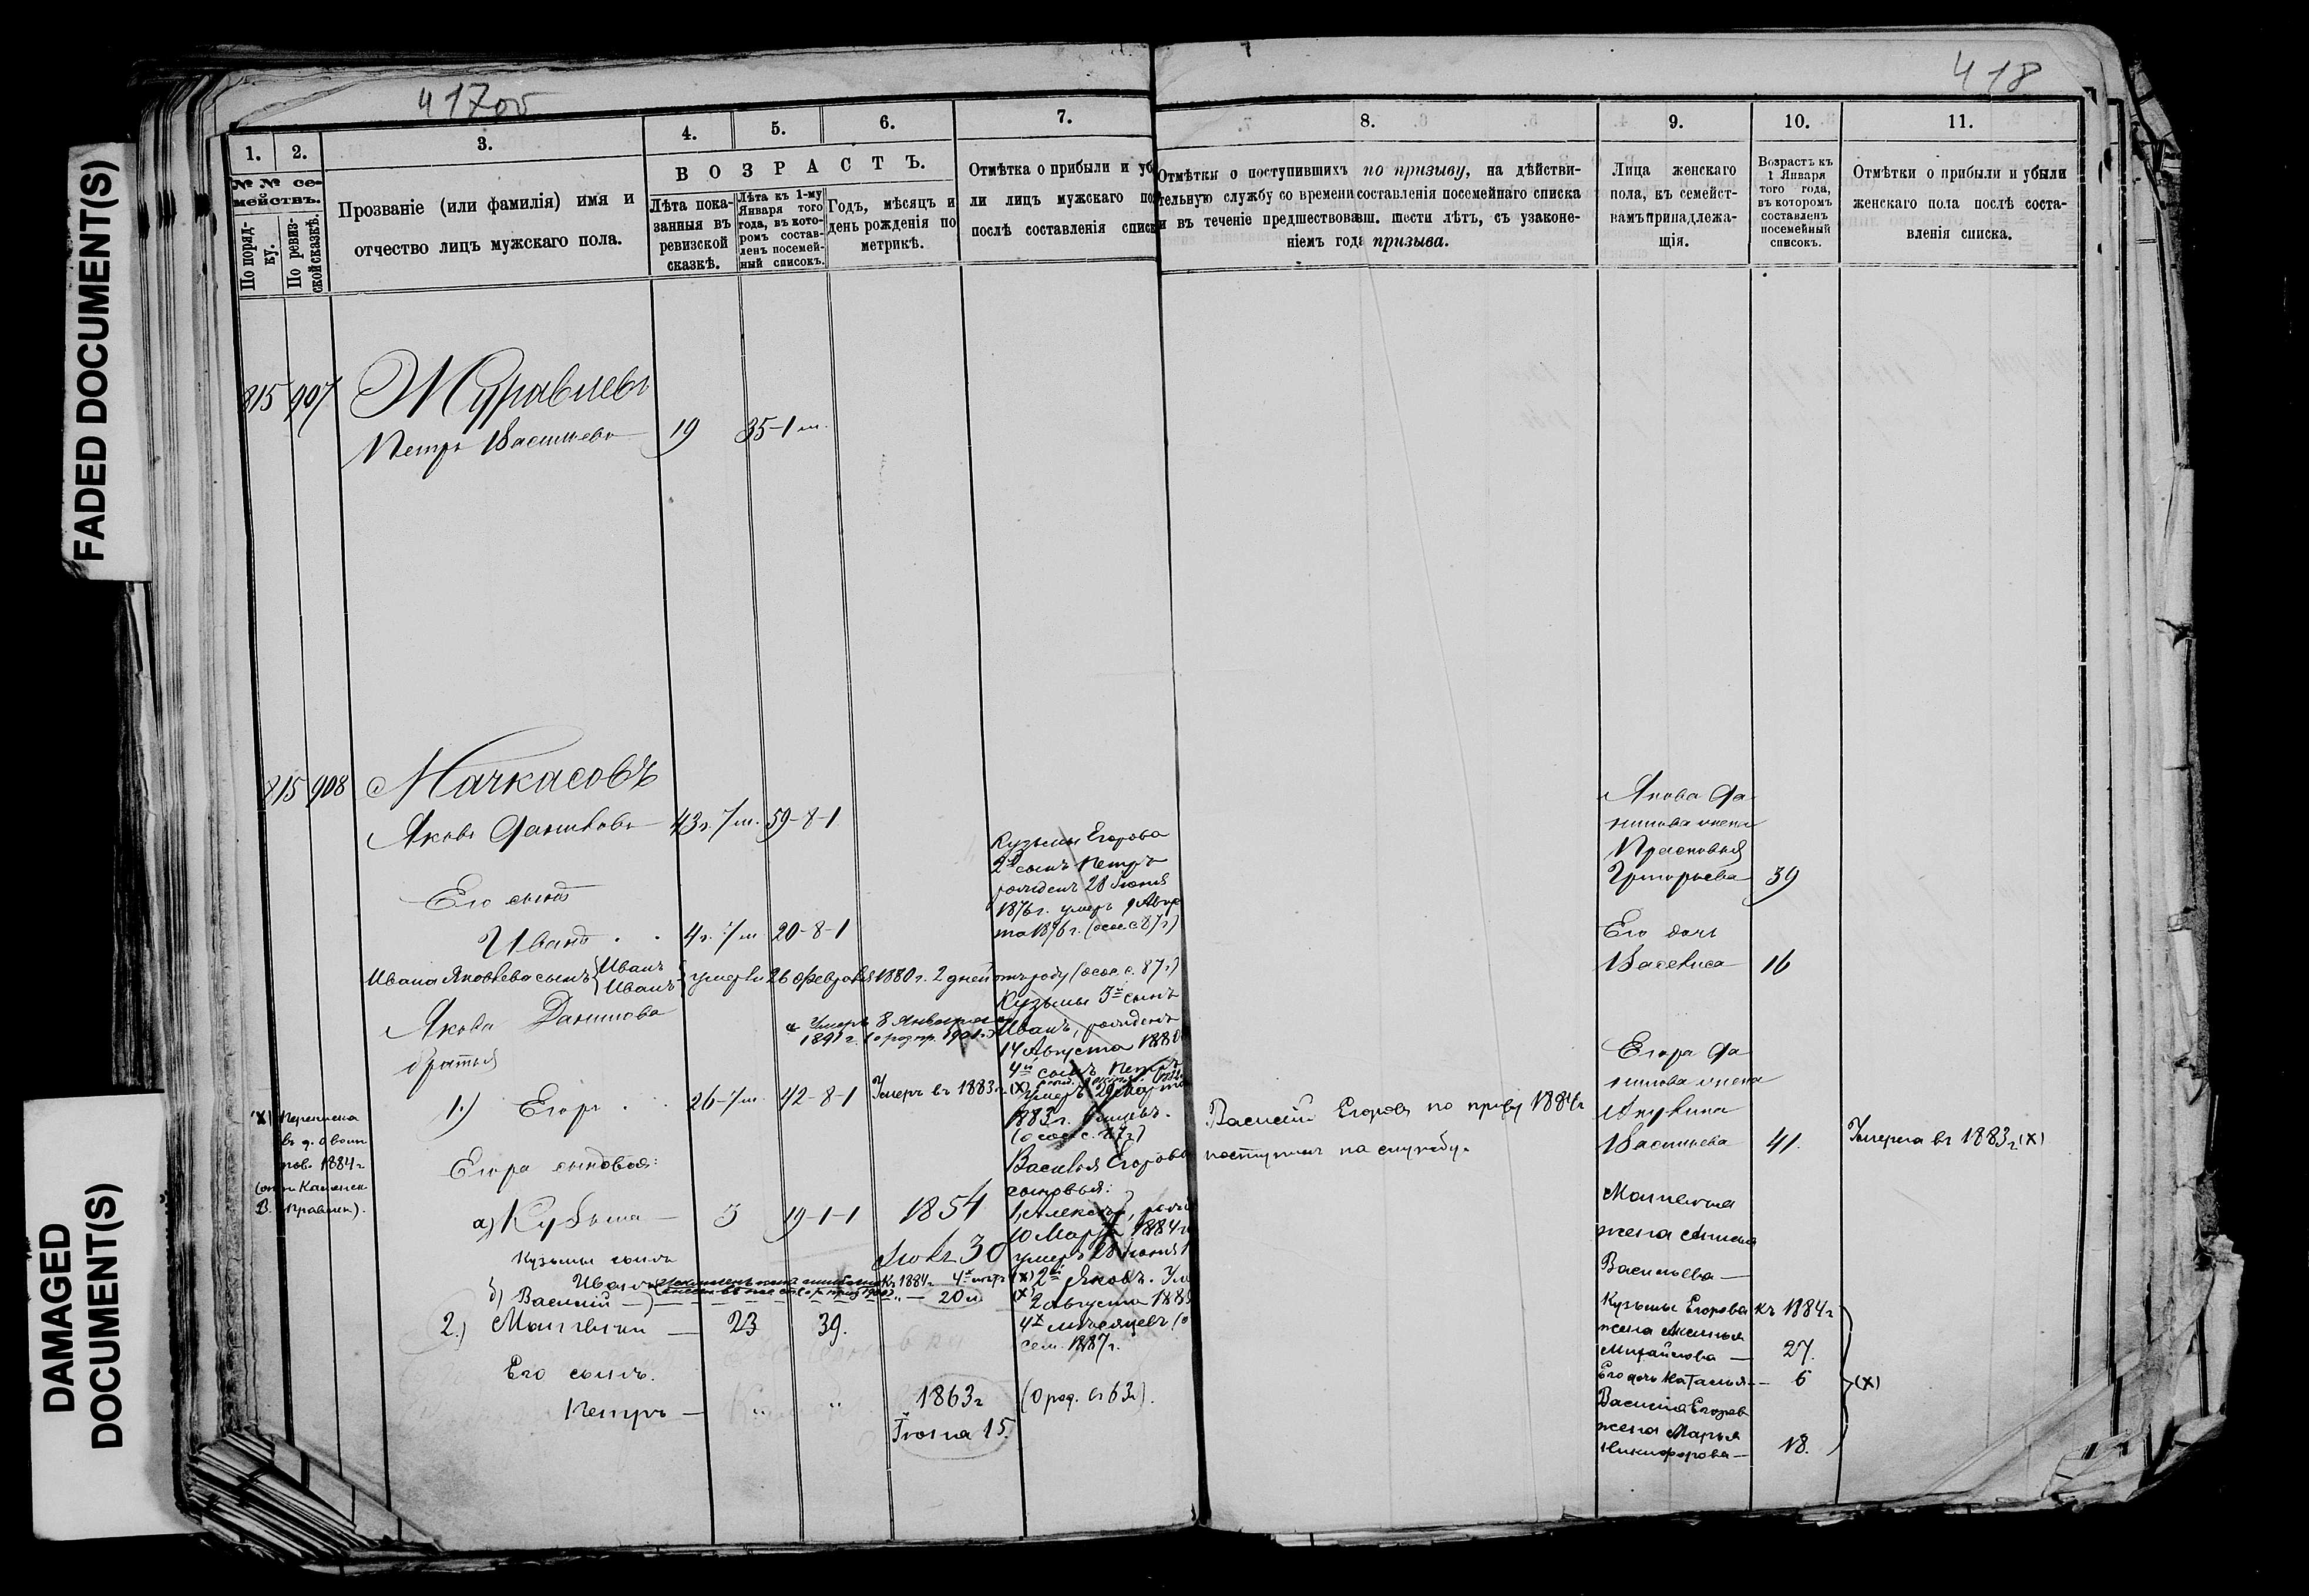 FADED DOCUMENT(S)
DAMAGED DOCUMENT(S)
417об
418
1.
2.
3.
4.
5.
6.
7.
8.
9.
10.
11.
№№ се-
мействъ.
По поряд-
ку.
По ревиз-
ской сказкѣ.
Прозваніе (или фамилія) имя и
отчество лицъ мужскаго пола.
ВОЗРАСТЪ.
Лѣта пока-
занныя въ
ревизской
сказкѣ.
Лѣта къ 1-му
Января того
года, въ кото-
ромъ состав-
ленъ посемей-
ный списокъ.
Годъ, мѣсяцъ и
день рожденія по
метрикѣ.
Отмѣтка о прибыли и уб
ли лицъ мужскаго по
послѣ составленія списк
Отмѣтки о поступившихъ по призыву, на дѣйстви-
тельную службу со времени составленія посемейнаго списка
и въ теченіе предшествовавш. шести лѣтъ, съ узаконе-
ніемъ года призыва.
Лица женскаго
пола, къ семейст-
вамъ принадлежа-
щія.
Возрастъ къ
1 Января
того года,
въ которомъ
составленъ
посемейный
списокъ.
Отмѣтки о прибыли и убыли
женскаго пола послѣ соста-
вленія списка.
815 907 Журавлевъ
Петръ Васильевъ 19 35-1 м.
815 908 Мачкасовъ
Яковъ Даниловъ 43 г. 7 м. 59-8-1
Его сынъ
Иванъ 4 г. 7 м. 20-8-1
Ивана Яковлева сынъ Иванъ
Иванъ умерли 26 февраля 1880 г. 2 дней отъ роду (осос. с. 87 г.)
Якова Данилова
братья
Умеръ 8 Января
1891 г.
1.) Егоръ 26-7 м. 42-8-1 Умеръ въ 1883 г. (х)
(х) Переписка
въ д. о воин
пов. 1884 г
Правлен).
Егора сыновья:
а) Кузьма 3 19-1-1 1854
Кузьмы сынъ
Иванъ къ 1884 г. (х)
б) Василій — 20 л (х)
2.) 23 39.
Его сынъ.
Петръ — " " 1863 г (О род. в 63 г).
Іюня 15.
Кузьмы Егорова
2й сынъ Петръ
рожденъ 28 Іюня
1876 г. умеръ 9 Авгус
та 1876 г. (осос. с 87 г)
Кузьмы 3й сынъ
Иванъ, рожденъ
14 Августа 1880
4й сынъ Петръ
1883 г.
Василья Егорова
сыновья:
10 Марта 1884 г
умеръ 28 Іюня 1
2й Яковъ. Ум
2 Августа 188
4х мѣсяцевъ (о
сем. 1887 г.
Василій Егоровъ по призу 1884 г
поступилъ на службу.
Якова Да
нилова жена
Прасковья
Григорьева 39
Его дочь
Василиса 16
Егора Да
нилова жена
Акулина
Васильева 41. Умерла въ 1883 г (х)
жена
Васильева —
Кузьмы Егорова къ 1884 г
жена Аксинья
Михайлова — 27.
Его дочь Наталья — 6 (х)
Василія Егоров
жена Марья
Никифорова — 18.